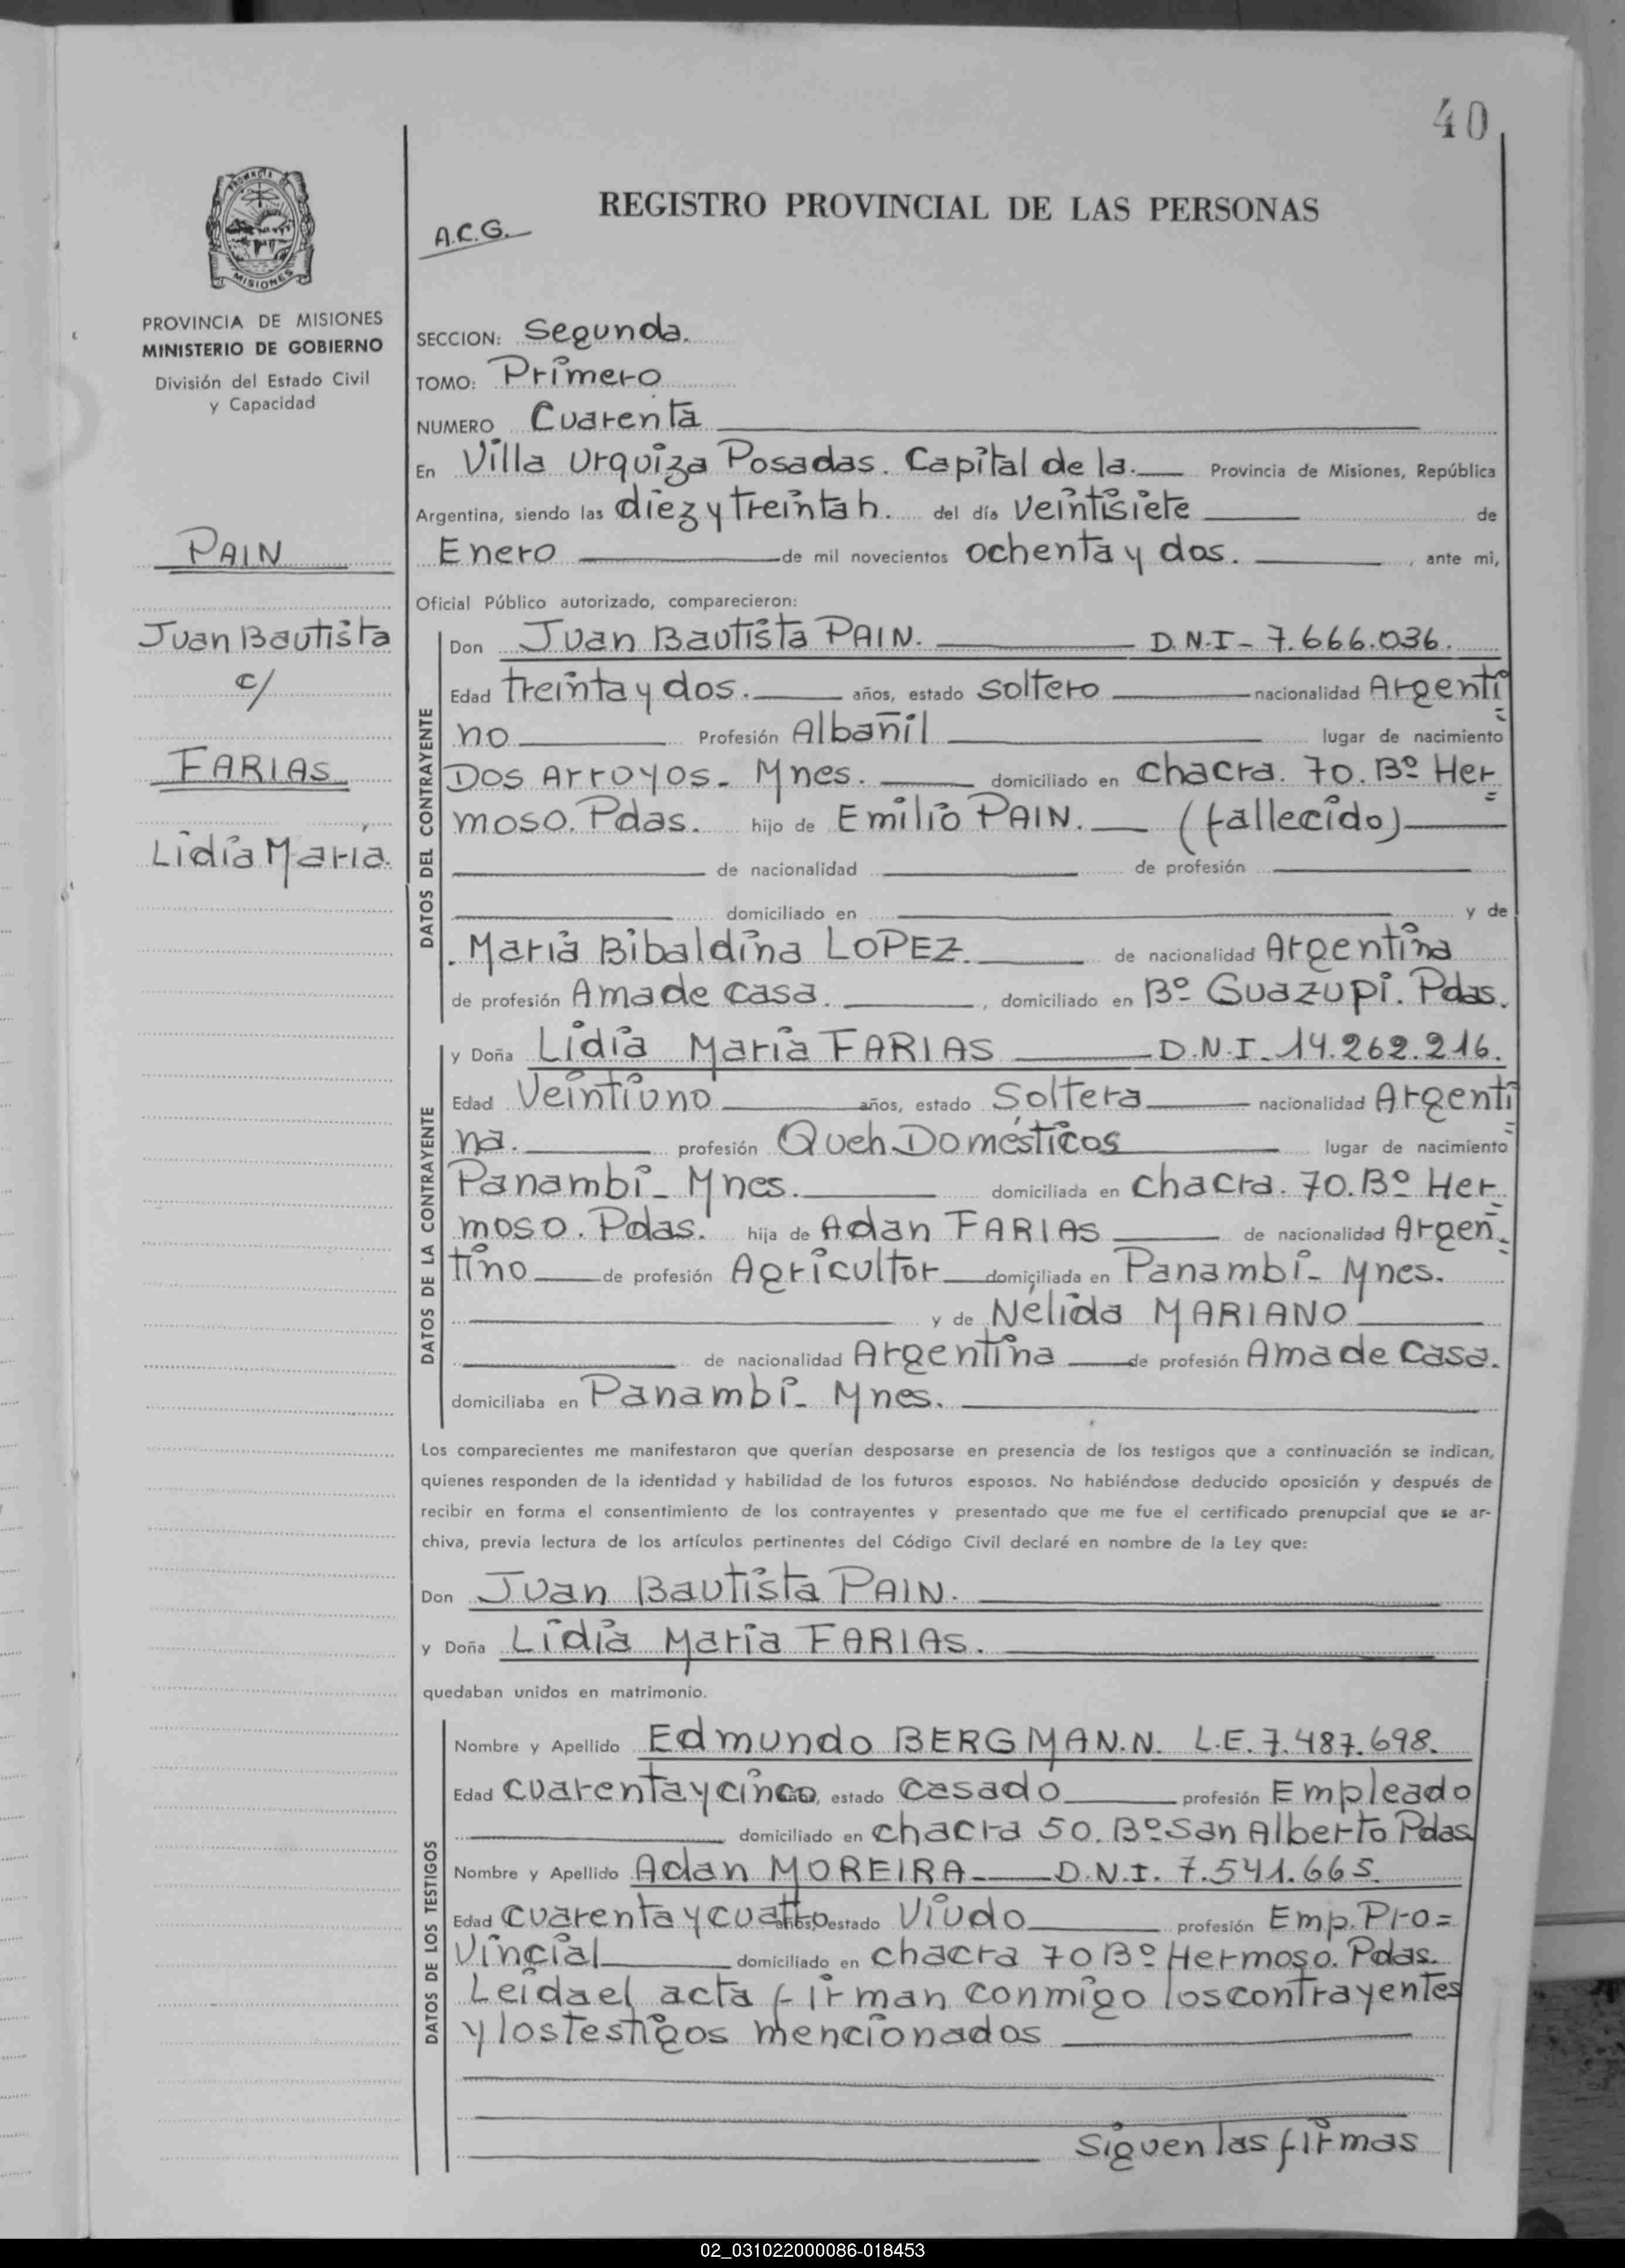 40
PROVINCIA DE
MISIONES
PROVINCIA DE MISIONES
MINISTERIO DE GOBIERNO
División del Estado Civil
y Capacidad
PAIN
Juan Bautista
c/
FARIAS
Lidia María.
REGISTRO PROVINCIAL DE LAS PERSONAS
A.C.G.
SECCION: Segunda.
TOMO: Primero
NUMERO Cuarenta
En Villa Urquiza Posadas. Capital de la. Provincia de Misiones, República
Argentina, siendo las diez y treinta h. del día Veintisiete de
Enero de mil novecientos ochenta y dos. , ante mi,
Oficial Público autorizado, comparecieron:
DATOS DEL CONTRAYENTE
Don Juan Bautista PAIN. D.N.I - 7.666.036.
Edad treinta y dos. años, estado soltero nacionalidad Argenti=
no Profesión Albañil lugar de nacimiento
Dos Arroyos - Mnes. domiciliado en chacra. 70. Bº Her=
moso. Pdas. hijo de Emilio PAIN. (fallecido)
de nacionalidad de profesión
domiciliado en y de
. María Bibaldina LOPEZ. de nacionalidad Argentina
de profesión Ama de casa. , domiciliado en Bº Guazupi. Pdas.
DATOS DE LA CONTRAYENTE
y Doña Lidia María FARIAS D.N.I. 14.262.216.
Edad Veintiuno años, estado Soltera nacionalidad Argenti=
na. profesión Queh. Domésticos lugar de nacimiento
Panambí - Mnes. domiciliada en chacra. 70. Bº Her=
moso. Pdas. hija de Adan FARIAS de nacionalidad Argen=
tino de profesión Agricultor domiciliada en Panambí - Mnes.
y de Nélida MARIANO
de nacionalidad Argentina de profesión Ama de Casa.
domiciliaba en Panambí - Mnes.
Los comparecientes me manifestaron que querían desposarse en presencia de los testigos que a continuación se indican,
quienes responden de la identidad y habilidad de los futuros esposos. No habiéndose deducido oposición y después de
recibir en forma el consentimiento de los contrayentes y presentado que me fue el certificado prenupcial que se ar-
chiva, previa lectura de los artículos pertinentes del Código Civil declaré en nombre de la Ley que:
Don Juan Bautista PAIN.
y Doña Lidia María FARIAS.
quedaban unidos en matrimonio.
DATOS DE LOS TESTIGOS
Nombre y Apellido Edmundo BERGMAN.N. L.E. 7.487.698.
Edad cuarenta y cinco años, estado casado profesión Empleado
domiciliado en chacra 50. Bº San Alberto Pdas
Nombre y Apellido Adan MOREIRA D.N.I. 7.541.665
Edad cuarenta y cuatro años, estado Viudo profesión Emp. Pro=
vincial domiciliado en chacra 70 Bº Hermoso. Pdas.
Leida el acta firman conmigo los contrayentes
y los testigos mencionados
Siguen las firmas
02_031022000086-018453